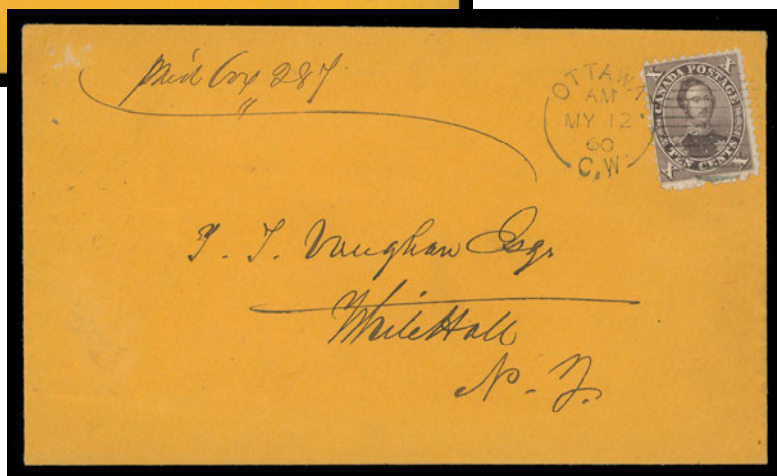 Paid Box 287
OTTAWA
AM
MY 12
60
C.W
CANADA POSTAGE
TEN CENTS
X X X X
T. Vaughan Esqr
WhiteHall
N. Y.